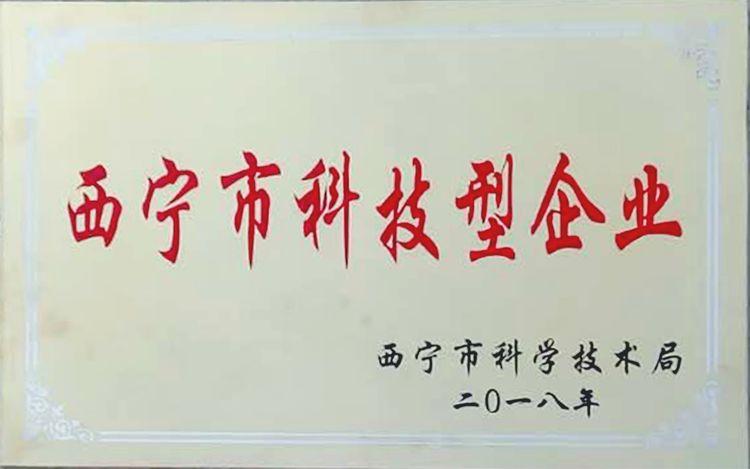 西宁市科技型企业
西宁市科学技术局
二〇一八年